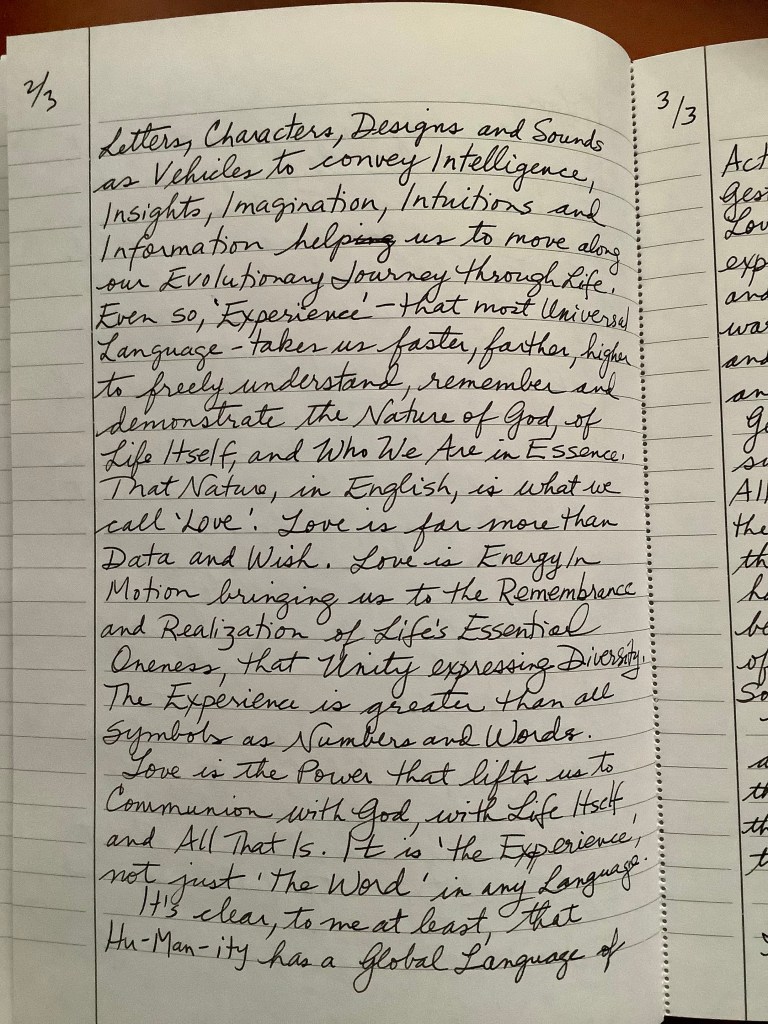 2/3
Letters, Characters, Designs and Sounds
as Vehicles to convey Intelligence,
Insights, Imagination, Intuitions and
Information help us to move along
our Evolutionary Journey through Life.
Even so, 'Experience' - that most Universal
Language - takes us faster, farther, higher
to freely understand, remember and
demonstrate the Nature of God, of
Life Itself, and Who We Are in Essence.
That Nature, in English, is what we
call 'Love'. Love is far more than
Data and Wish. Love is Energy In
Motion bringing us to the Remembrance
and Realization of Life's Essential
Oneness, that Unity expressing Diversity.
The Experience is greater than all
Symbols as Numbers and Words.
Love is the Power that lifts us to
Communion with God, with Life Itself
and All That Is. It is 'the Experience',
not just 'the Word' in any Language.
It's clear, to me at least, that
Hu-Man-ity has a Global Language of
3/3
Act
gest
Lov
exp
and
war
and
an
Ge
su
All
the
th
ha
be
of
So
a
th
th
t